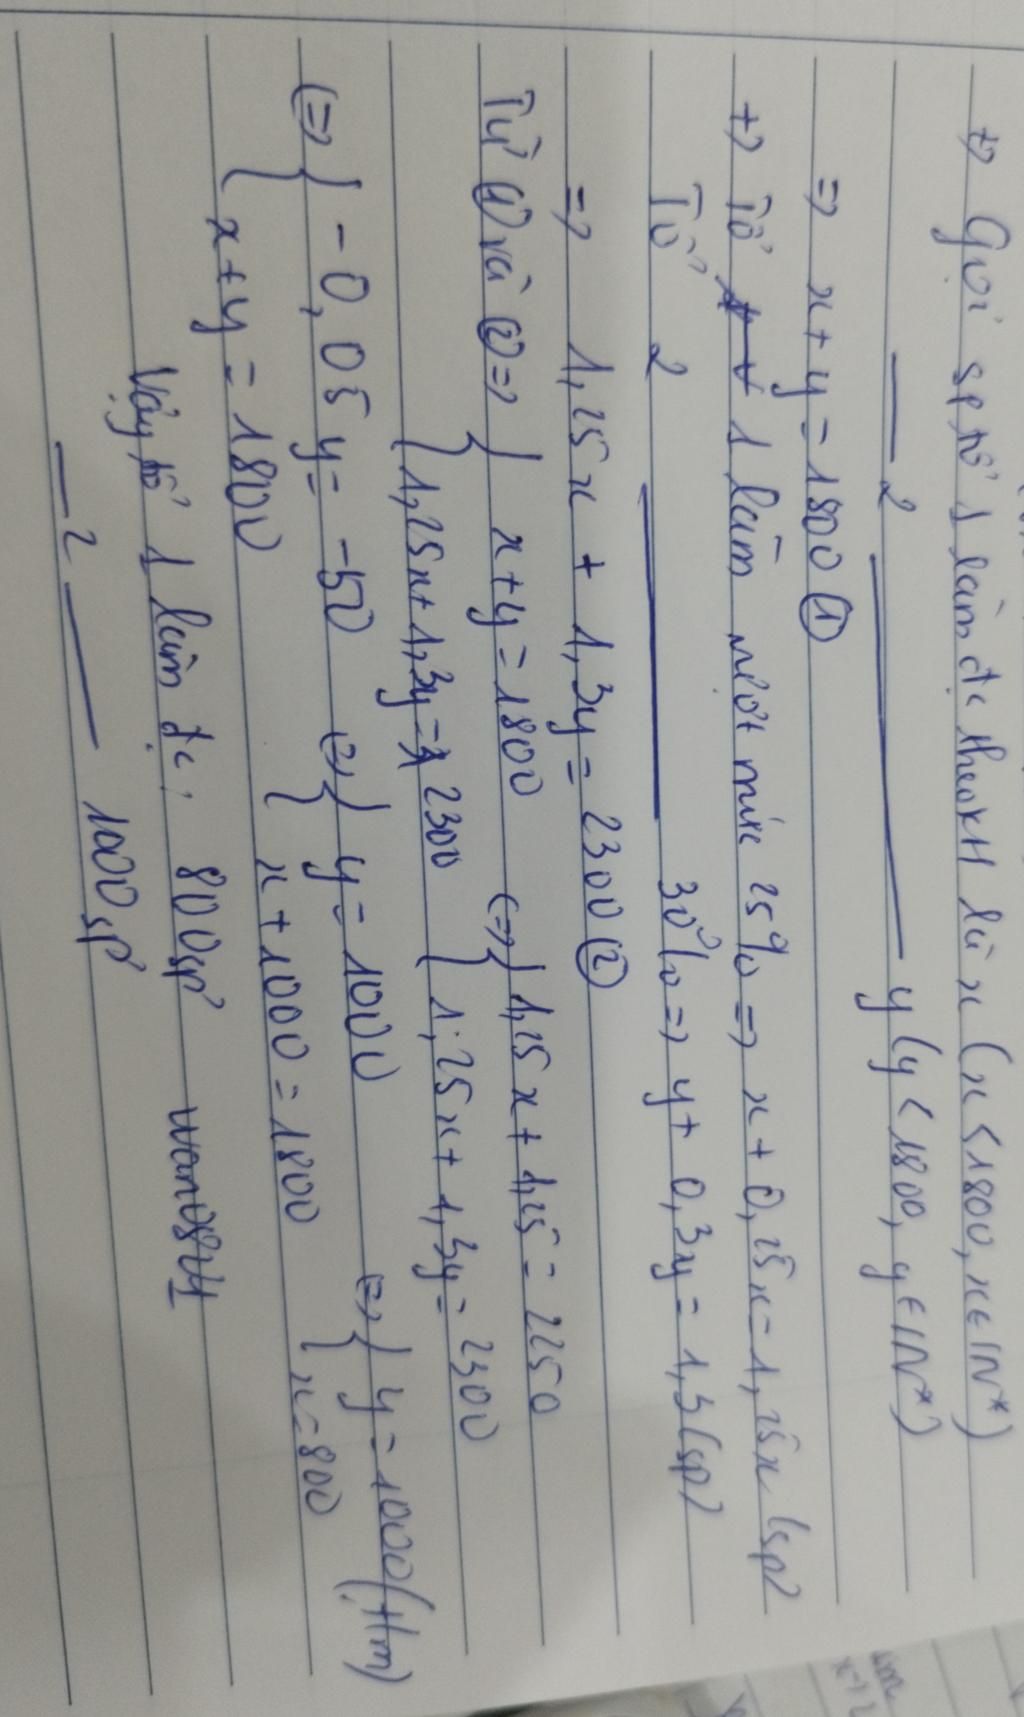 +) Gọi sp tổ 1 làm đc theo KH là x (x < 1800, x ∈ IN*)
— 2 — y (y < 1800, y ∈ IN*)
=> x + y = 1800 ①
+) Tổ 1 làm vượt mức 25% => x + 0,25x = 1,25x (sp)
Tổ 2 — 30% => y + 0,3y = 1,3 (sp)
=> 1,25x + 1,3y = 2300 ②
Từ ① và ② => { x + y = 1800 (=> { 1,25x + 1,25 = 2250
{ 1,25x + 1,3y = 2300 { 1,25x + 1,3y = 2300
(=> { -0,05y = -50 (=> { y = 1000 (=> { y = 1000 (tm)
{ x + y = 1800 { x + 1000 = 1800 { x = 800
Vậy tổ 1 làm đc: 800 sp
— 2 — 1000 sp